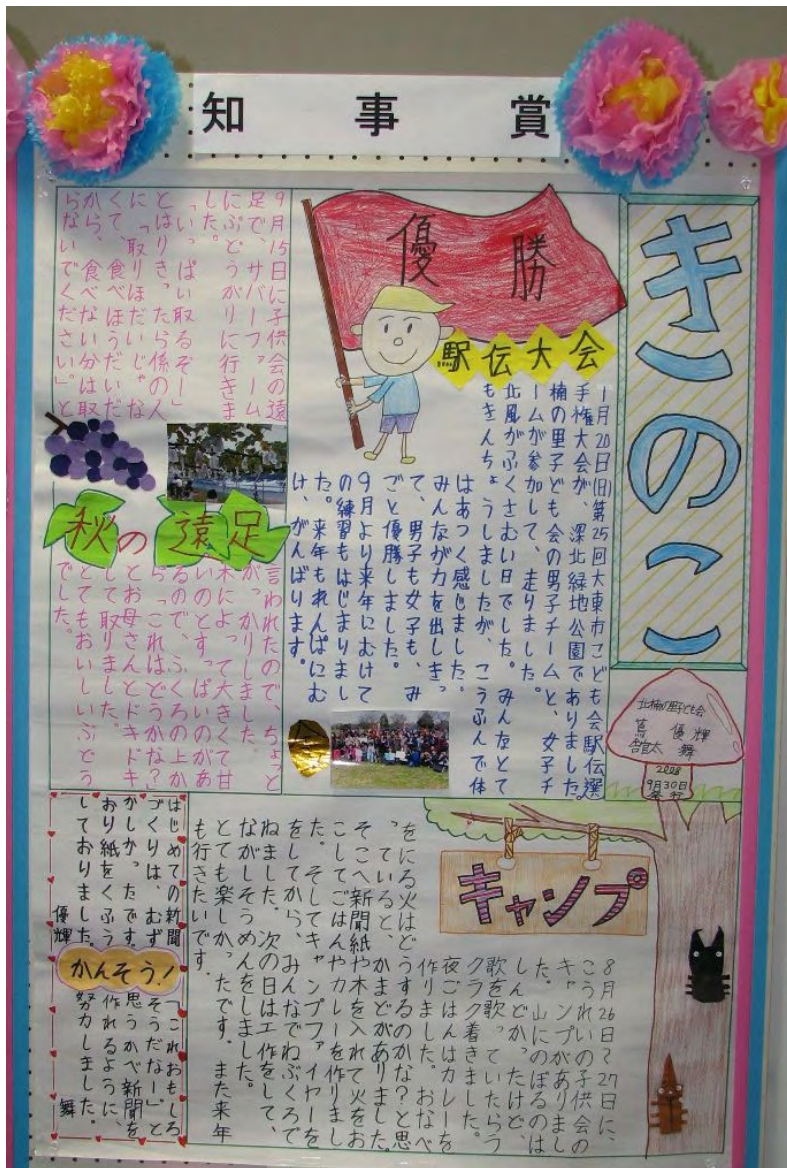 知事賞
きのこ
北楠の里子ども会
優輝
舘太 舞
2008
9月30日
発行
優勝
駅伝大会
1月20日(日)第25回大東市こども会駅伝選
手権大会が、深北緑地公園でありました。
楠の里子ども会の男子チームと、女子チ
ームが参加して、走りました。
北風がふくさむい日でした。みんなとて
もきんちょうしましたが、こうふんで体
はあつく感じました。
みんなが力を出しきっ
て、男子も女子も、み
ごと優勝しました。
9月より来年にむけて
の練習もはじまりまし
た。来年もれんぱにむ
け、がんばります。
9月15日に子供会の遠
足で、サバーファーム
にぶどうがりに行きま
した。
「いっぱい取るぞー」
とはりきったら、係の人
に「取りほうだいじゃな
くて、食べほうだいだ
から、食べない分は取
らないでください。」と
秋の遠足
言われたので、ちょっと
がっかりしました。
木によって大きくて甘
いのとすっぱいのがあ
るので、ふくろの上か
ら「これはどうかな?」
とお母さんとドキドキ
して取りました。
とてもおいしいぶどう
でした。
キャンプ
8月26日~27日に、
こうれいの子供会の
キャンプがありまし
た。山にのぼるのは
しんどかったけど、
歌を歌っていたらラ
クラク着きました。
夜ごはんはカレーを
作りました。おなべ
をにる火はどうするのかな?と思
っていると、かまどがありました。
そこへ新聞紙や木を入れて火をお
こしてごはんやカレーを作りまし
た。そしてキャンプファイヤーを
をしてから、みんなでねぶくろで
ねました。次の日は工作をして、
ながしそうめんをしました。
とても楽しかったです。また来年
も行きたいです。
かんそう!
はじめての新聞
づくりは、むず
かしかったです。
おり紙をくふう
しており ました。
優輝
「これおもしろ
そうだなー」と
思うかべ新聞を
作れるように、
努力しました。
舞